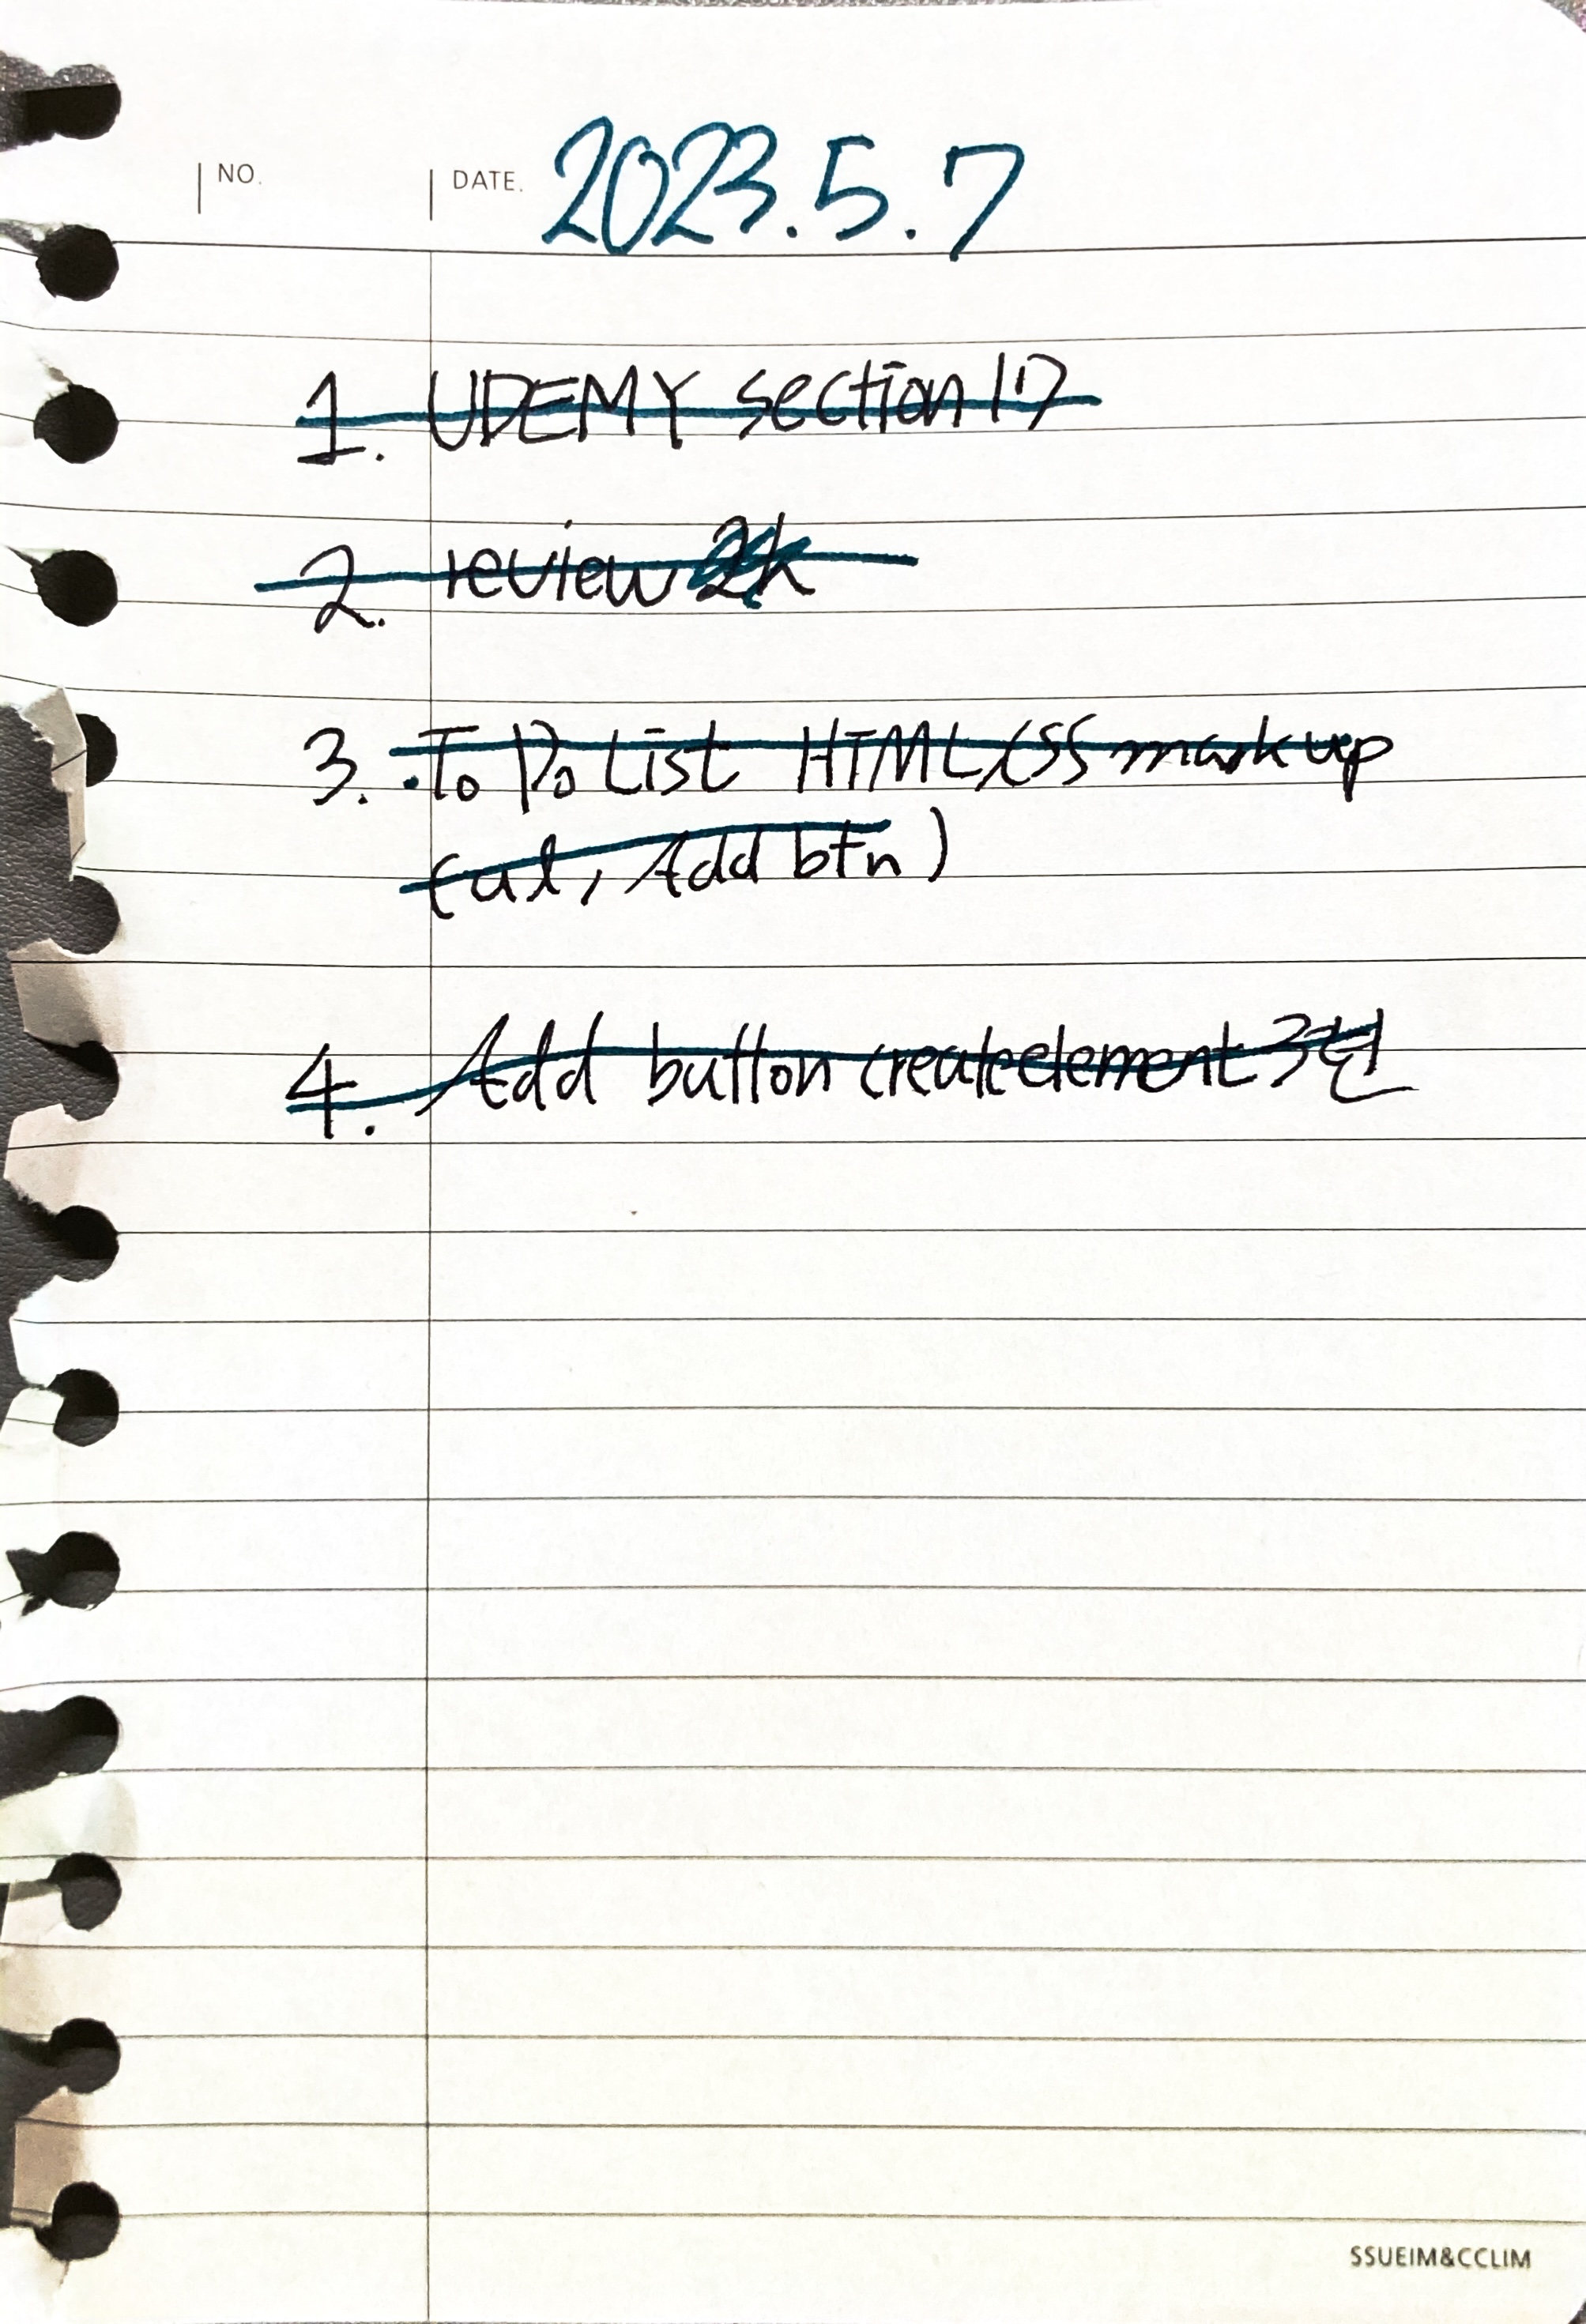 NO.
DATE. 2023.5.7
1. UDEMY section 17
2. review
3. To Do List HTML/CSS markup
(ul, Add btn)
4. Add button createelement 3번
SSUEIM&CCLIM